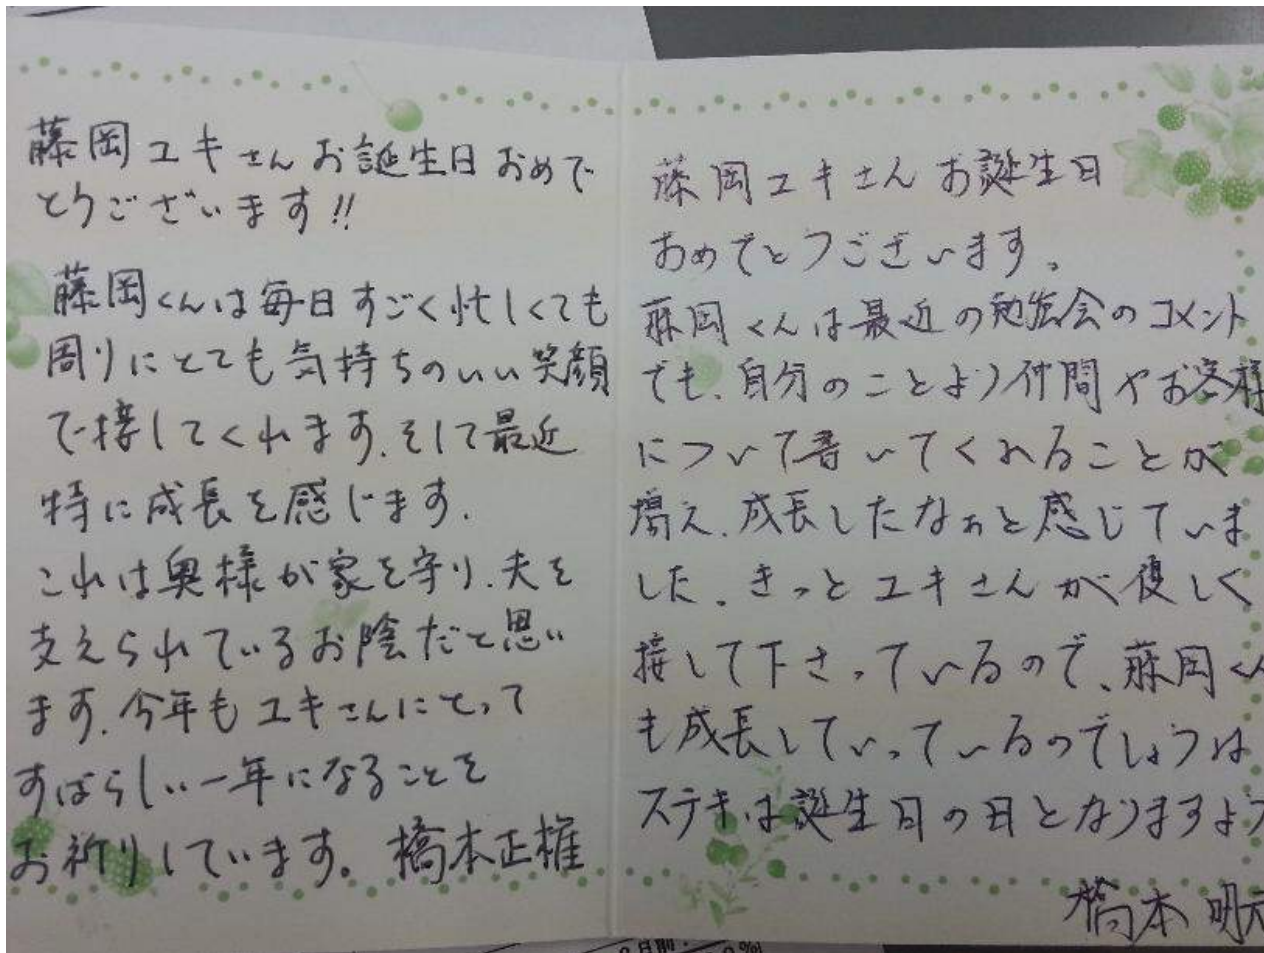 藤岡ユキさんお誕生日おめで
とうございます!!
藤岡くんは毎日すごく忙しくても
周りにとても気持ちのいい笑顔
で接してくれます.そして最近
特に成長を感じます.
これは奥様が家を守り.夫を
支えられているお陰だと思い
ます.今年もユキさんにとって
すばらしい一年になることを
お祈りしています。橋本正権
藤岡ユキさんお誕生日
おめでとうございます。
藤岡くんは最近の勉強会のコメント
でも、自分のことより仲間やお客様
について書いてくれることが
増え、成長したなぁと感じていま
した。きっとユキさんが優しく
接して下さっているので、藤岡くん
も成長していっているのでしょうね
ステキな誕生日の日となりますよう
橋本 明